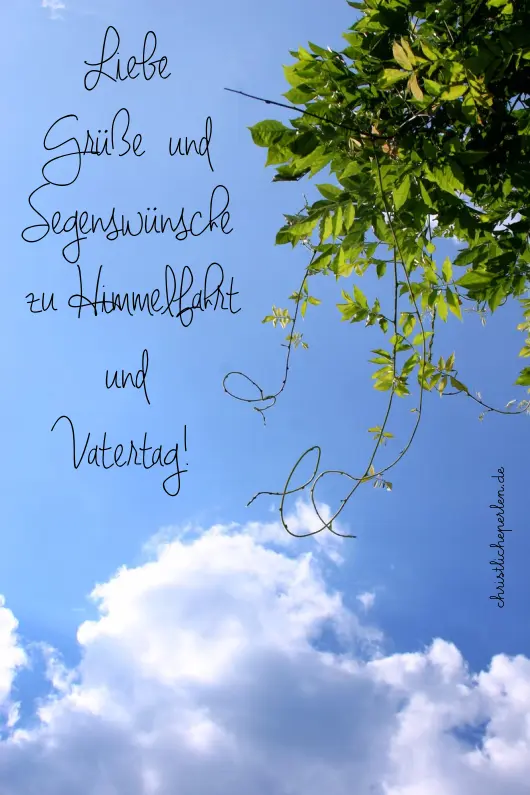 Liebe
Grüße und
Segenswünsche
zu Himmelfahrt
und
Vatertag!
christlicheperlen.de